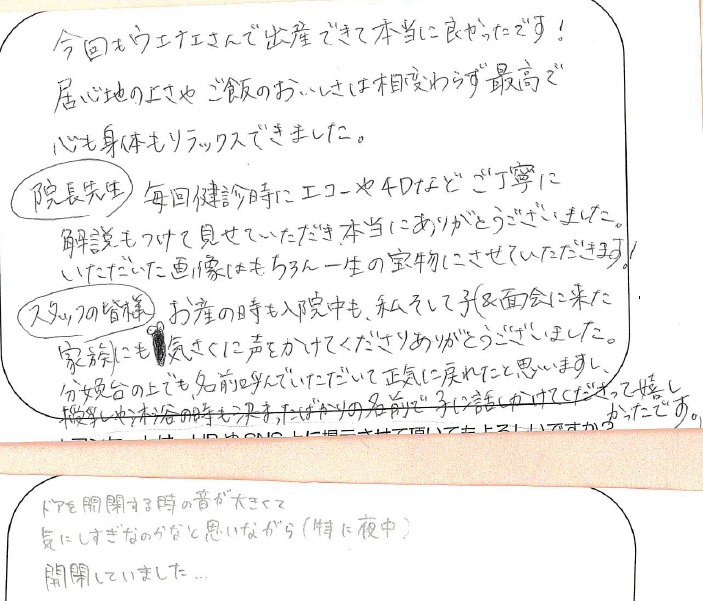 今回もウエナエさんで出産できて本当に良かったです！
居心地の良さや ご飯のおいしさは相変わらず最高で
心も身体もリラックスできました。
院長先生 毎回健診時にエコーや4Dなど ご丁寧に
解説もつけて見せていただき本当にありがとうございました。
いただいた画像はもちろん一生の宝物にさせていただきます！
スタッフの皆様 お産の時も入院中も、私そして子(&面会に来た
家族)にも気さくに声をかけてくださりありがとうございました。
分娩台の上でも名前呼んでいただいて正気に戻れたと思いますし、
授乳や沐浴の時も決まったばかりの名前で子に話しかけてくださって嬉し
かったです。
アンケートは、HPやSNS上に掲示させて頂いてもよろしいですか？
ドアを開閉する時の音が大きくて
気にしすぎなのかなと思いながら(特に夜中)
開閉していました...